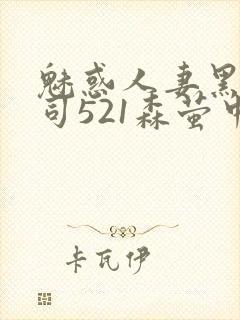 魅惑人妻黑
司521森萤中
卡瓦伊